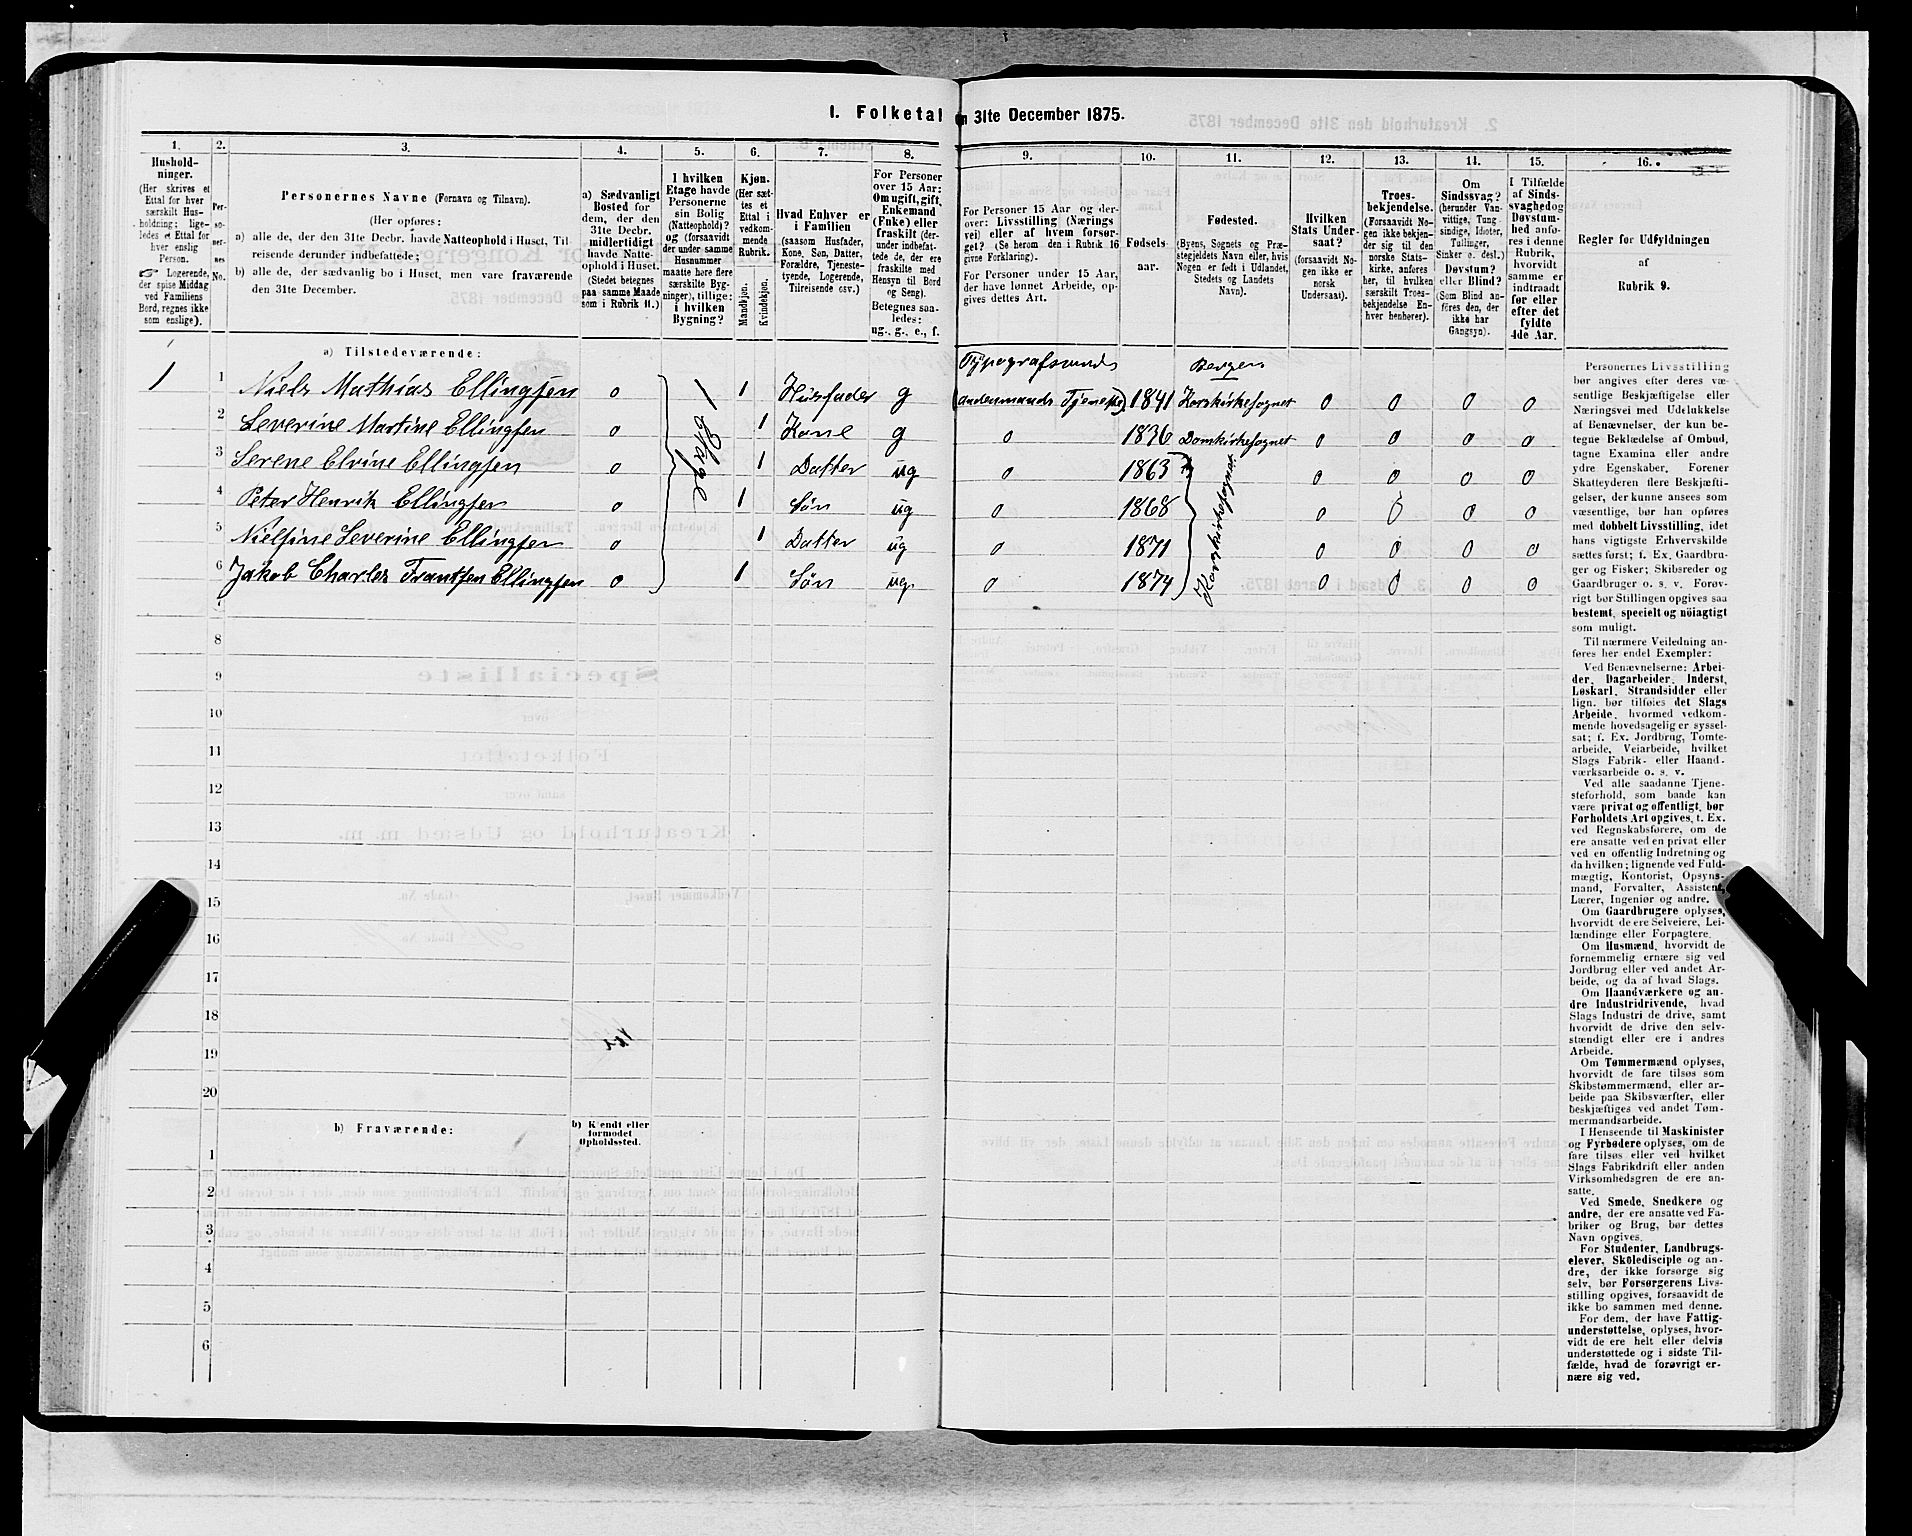 1. Folketal
n 31te December 1875.
1.
2.
3.
4.
5.
6.
7.
8.
9.
10.
11.
12.
13.
14.
15.
16.
Hushold-
ninger.
(Her skrives et
Ettal for hver
særskilt Hus-
holdning; lige-
ledes et Ettal for
hver enslig
Person.
Logerende,
der spise Middag
ved Familiens
Bord, regnes ikke
som enslige).
Per-
so-
ner-
nes
No.
Personernes Navne (Fornavn og Tilnavn).
(Her opføres:
a) alle de, der den 31te Decbr. havde Natteophold i Huset, Til-
reisende derunder indbefattede;
b) alle de, der sædvanlig bo i Huset, men vare fraværende
den 31te December.
a) Sædvanligt
Bosted for
dem, der den
31te Decbr.
midlertidigt
havde Natte-
ophold i Huset.
(Stedet betegnes
paa samme Maade
som i Rubrik 11.)
I hvilken
Etage havde
Personerne
sin Bolig
(Natteophold)?
og (forsaavidt
der under samme
Husnummer
maatte høre flere
særskilte Byg-
ninger), tillige:
i hvilken
Bygning?
Kjøn.
(Her sæt-
tes et
Ettal i
vedkom-
mende
Rubrik.
Mandkjøn.
Kvindekjøn.
Hvad Enhver er
i Familien
(saasom Husfader,
Kone, Søn, Datter,
Forældre, Tjeneste-
tyende, Logerende,
Tilreisende osv.)
For Personer
over 15 Aar:
Om ugift, gift,
Enkemand
(Enke) eller
fraskilt (der-
under indbefat-
tede de, der ere
fraskilte med
Hensyn til Bord
og Seng).
Betegnes saa-
ledes:
ug., g., e., f.
For Personer 15 Aar og der-
over: Livsstilling (Nærings
vei) eller af hvem forsør-
get? (Se herom den i Rubrik 16
givne Forklaring).
For Personer under 15 Aar,
der have lønnet Arbeide, op-
gives dettes Art.
Fødsels-
aar.
Fødested.
(Byens, Sognets og Præ-
stegjeldets Navn eller, hvis
Nogen er født i Udlandet,
Stedets og Landets
Navn).
Hvilken
Stats Under-
saat?
(forsaavidt No-
gen ikke er
norsk
Undersaat).
Troes-
bekjendelse.
(Forsaavidt No-
gen ikke bekjen-
der sig til den
norske Stats-
kirke, anføres
her, til hvilken
særskilt Troes-
bekjendelse En-
hver henhører).
Om
Sindssvag?
(herunder Van-
vittige, Tung
sindige, Idioter,
Tullinger,
Sinker o. desl.)
Døvstum?
eller Blind?
(Som Blind an-
føres den, der
ikke har
Gangsyn).
I Tilfælde
af Sinds-
svaghed og
Døvstum-
hed anfø-
res i denne
Rubrik,
hvorvidt
samme er
indtraadt
før eller
efter det
fyldte
4de Aar.
Regler for Udfyldningen
af
Rubrik 9.
a) Tilstedeværende:
Typografsvend
Bergen
1 1 Niels Mathias Ellingsen 0 1 Etage 1 Husfader g 1841 Korskirkesognet 0 0 0 0
2 Severine Martine Ellingsen 0 1 Kone g 0 1836 Domkirkesognet 0 0 0 0
3 Serene Elvine Ellingsen 0 1 Datter ug 0 1863 Korskirkesognet 0 0 0 0
4 Peter Henrik Ellingsen 0 1 Søn ug 0 1868 0 0 0 0
5 Nielsine Severine Ellingsen 0 1 Datter ug 0 1871 0 0 0 0
6 Jakob Charles Frantsen Ellingsen 0 1 Søn ug 0 1874 0 0 0 0
7
8
9
10
11
12
13
14
15
16
17
18
19
20
b) Fraværende:
b) Kjendt eller
formodet
Opholdssted.
1
2
3
4
5
6
Personernes Livsstilling
bør angives efter deres væ-
sentlige Beskjæftigelse eller
Næringsvei med Udelukkelse
af Benævnelser, der kun be-
tegne Beklædelse af Ombud,
tagne Examina eller andre
ydre Egenskaber. Forener
Skatteyderen flere Beskjæfti-
gelser, der kunne ansees som
væsentlige, bør han opføres
med dobbelt Livsstilling, idet
hans vigtigste Erhvervskilde
sættes først; f. Ex. Gaardbru-
ger og Fisker; Skibsreder og
Gaardbruger o. s. v. Forøv-
rigt bør Stillingen opgives saa
bestemt, specielt og nöiagtigt
som muligt.
Til nærmere Veiledning an-
føres her endel Exempler:
Ved Benævnelserne: Arbei-
der, Dagarbeider, Inderst,
Løskarl, Strandsidder eller
lign. bør tilføies det Slags
Arbeide, hvormed vedkom-
mende hovedsagelig er syssel-
sat; f. Ex. Jordbrug, Tomte-
arbeide, Veiarbeide, hvilket
Slags Fabrik- eller Haand-
værksarbeide o. s. v.
Ved alle saadanne Tjene-
steforhold, som baade kan
være privat og offentligt, bør
Forholdets Art opgives, t. Ex.
ved Regnskabsførere, om de
ere ansatte ved en privat eller
ved en offentlig Indretning og
da hvilken; lignende ved Fuld-
mægtig, Kontorist, Opsyns-
mand, Forvalter, Assistent,
Lærer, Ingeniør og andre.
Om Gaardbrugere oplyses,
hvorvidt de ere Selveiere, Lei-
lændinge eller Forpagtere.
Om Husmænd, hvorvidt de
fornemmelig ernære sig ved
Jordbrug eller ved andet Ar-
beide, og da af hvad Slags.
Om Haandværkere og an-
dre Industridrivende, hvad
Slags Industri de drive, samt
hvorvidt de drive den selv-
stændigt eller ere i andres
Arbeide.
Om Tømmermænd oplyses,
hvorvidt de fare tilsøs som
Skibstømmermænd, eller ar-
beide paa Skibsværfter, eller
beskjæftiges ved andet Tøm-
mermandsarbeide.
I Henseende til Maskinister
og Fyrbødere oplyses, om de
fare tilsøs eller ved hvilket
Slags Fabrikdrift eller anden
Virksomhedsgren de ere an-
satte.
Ved Smede, Snedkere og
andre, der ere ansatte ved Fa-
briker og Brug, bør dettes
Navn opgives.
For Studenter, Landbrugs-
elever, Skoledisciple og an-
dre, der ikke forsørge sig
selv, bør Forsørgerens Livs-
stilling opgives, forsaavidt de
ikke bo sammen med denne.
For dem, der have Fattig-
understøttelse, oplyses, hvor-
vidt de ere helt eller delvis
understøttede og i sidste Til-
fælde, hvad de forøvrigt er-
nære sig ved.